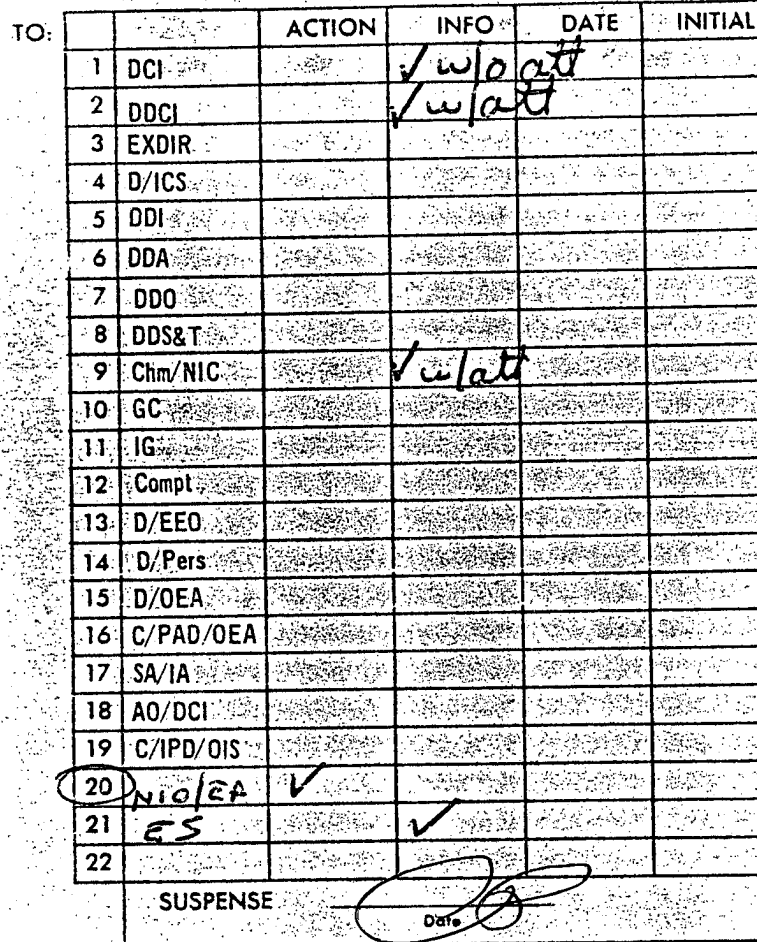 TO: ACTION INFO DATE INITIAL
1 DCI ✓ w/o att
2 DDCI ✓ w/att
3 EXDIR
4 D/ICS
5 DDI
6 DDA
7 DDO
8 DDS&T
9 Chm/NIC ✓ w/att
10 GC
11 IG
12 Compt
13 D/EEO
14 D/Pers
15 D/OEA
16 C/PAD/OEA
17 SA/IA
18 AO/DCI
19 C/IPD/OIS
20 NIO/EA ✓
21 ES ✓
22
SUSPENSE
Date